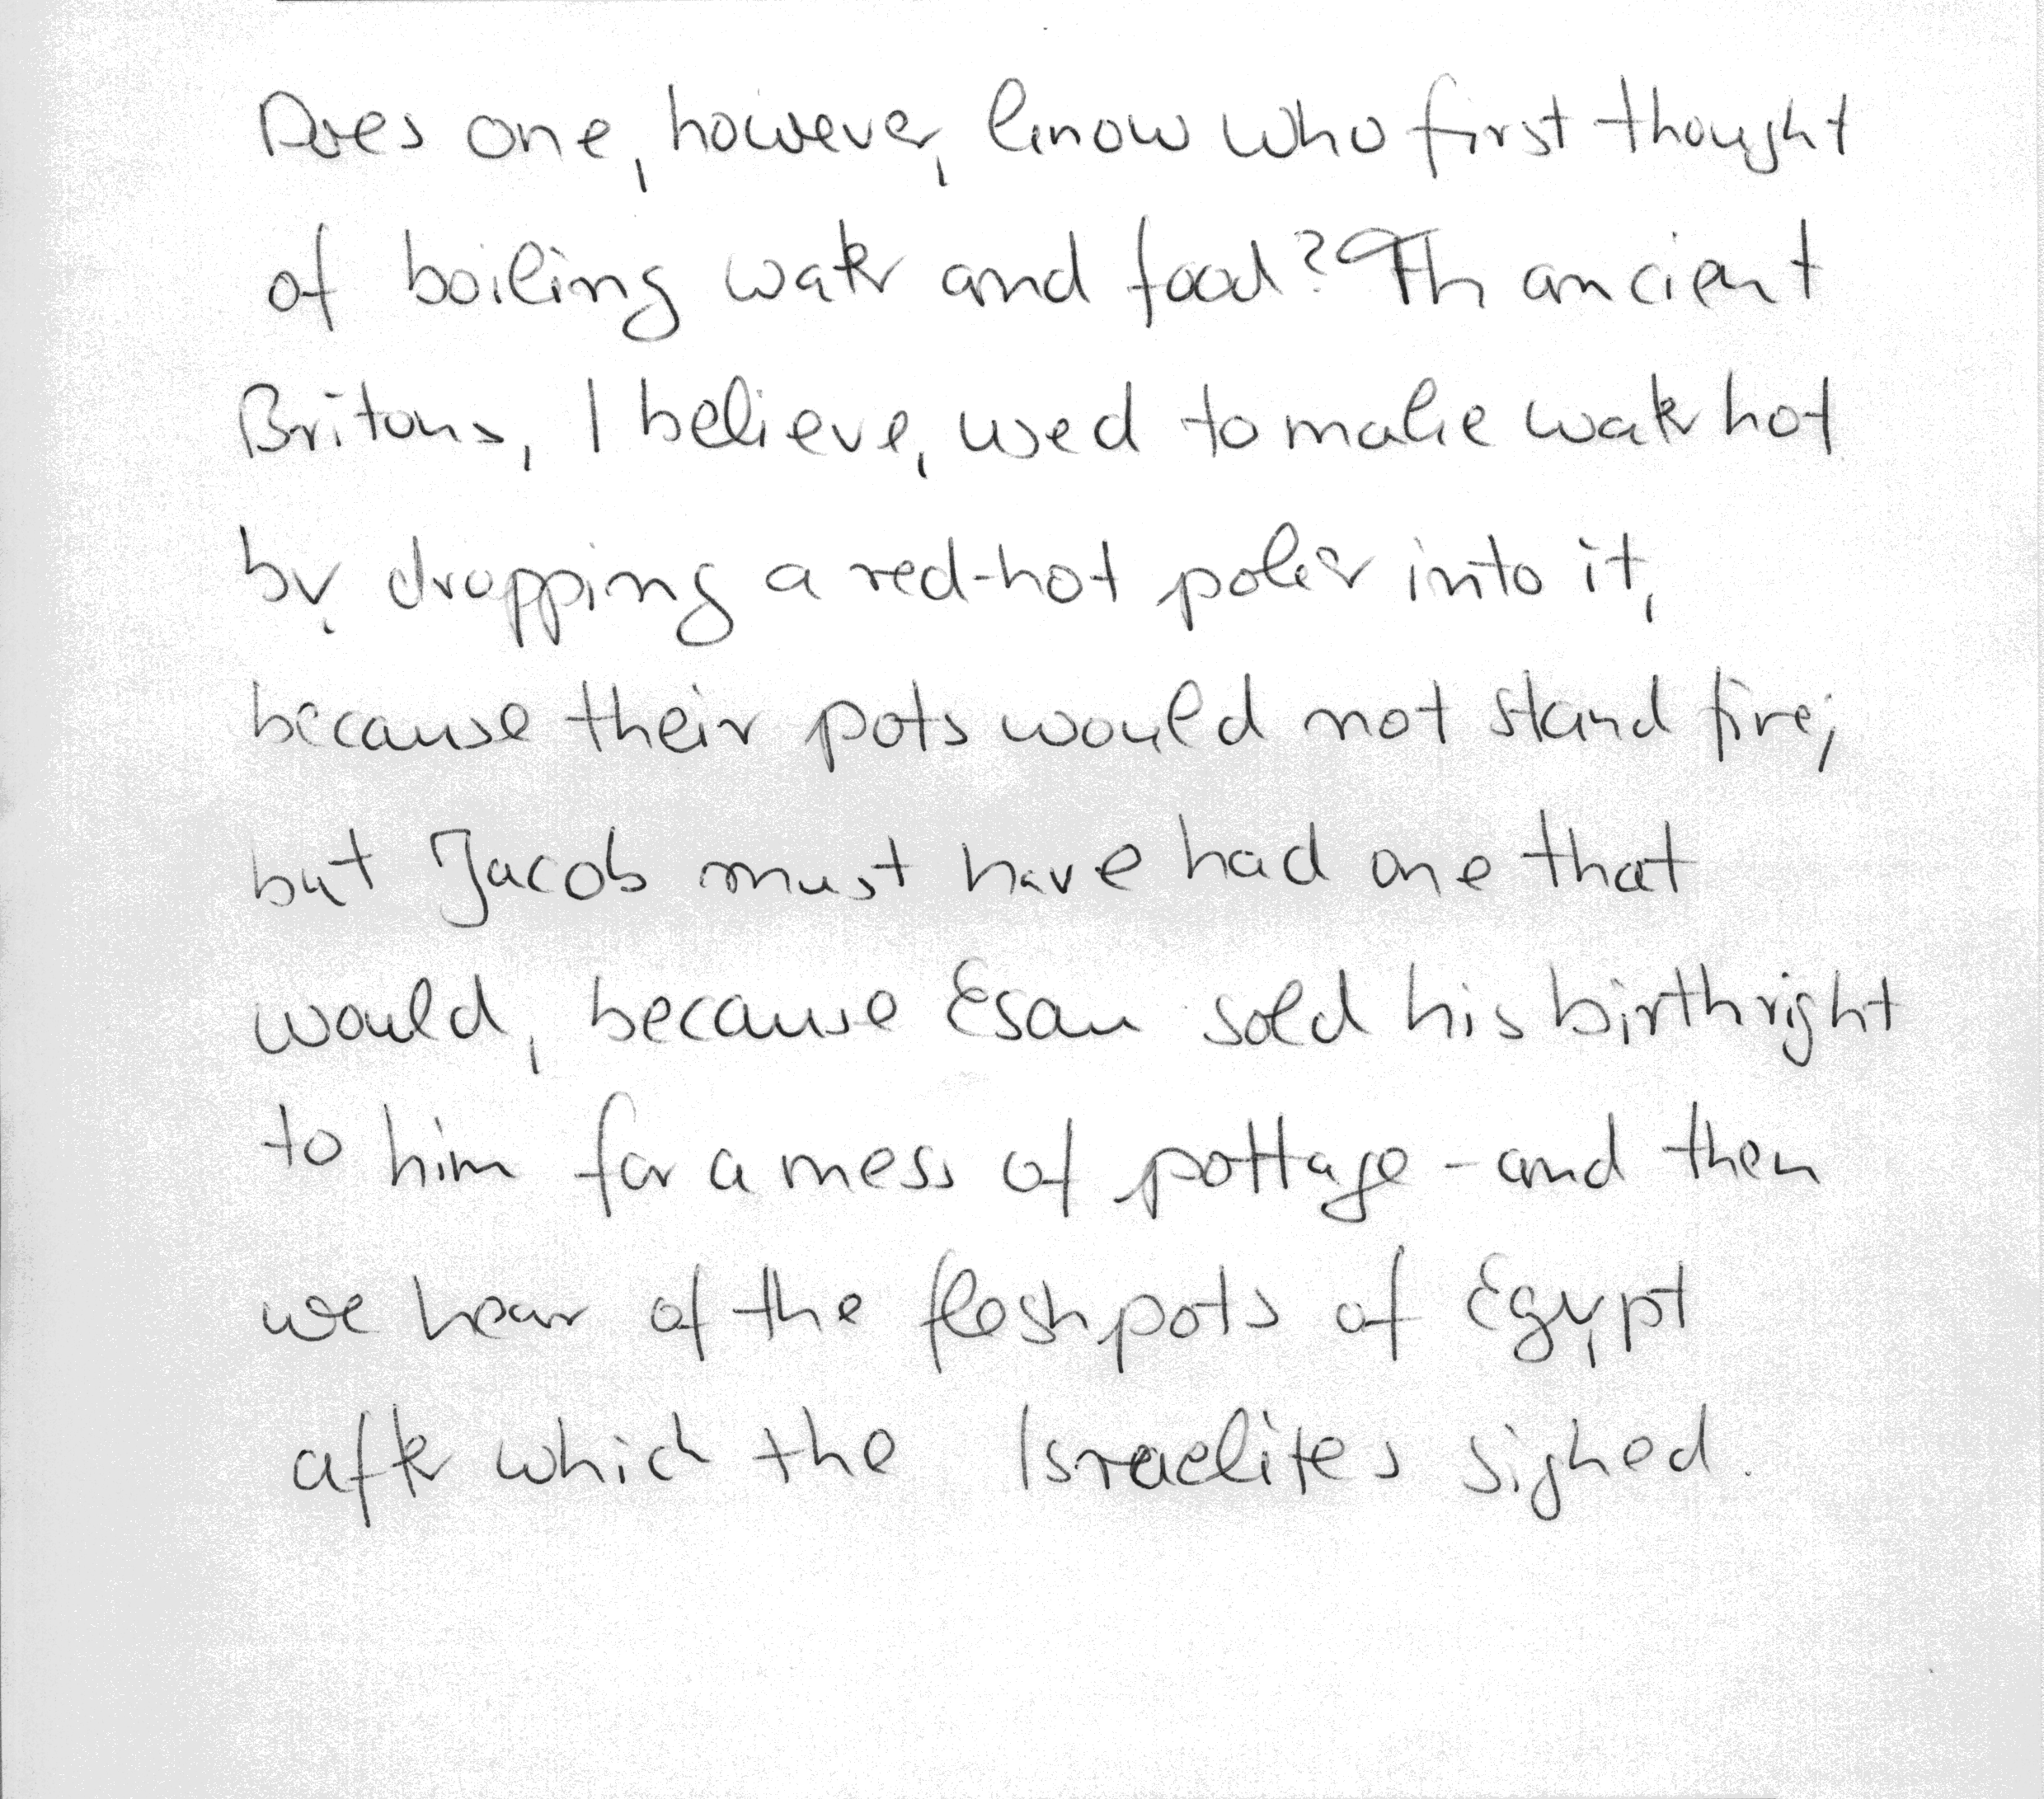 Does one, however, know who first thought
of boiling water and food? Th ancient
Britons, I believe, used to make water hot
by dropping a red-hot poker into it,
because their pots would not stand fire;
but Jacob must have had one that
would, because Esau sold his birthright
to him for a mess of pottage - and then
we hear of the fleshpots of Egypt
after which the Israelites sighed.